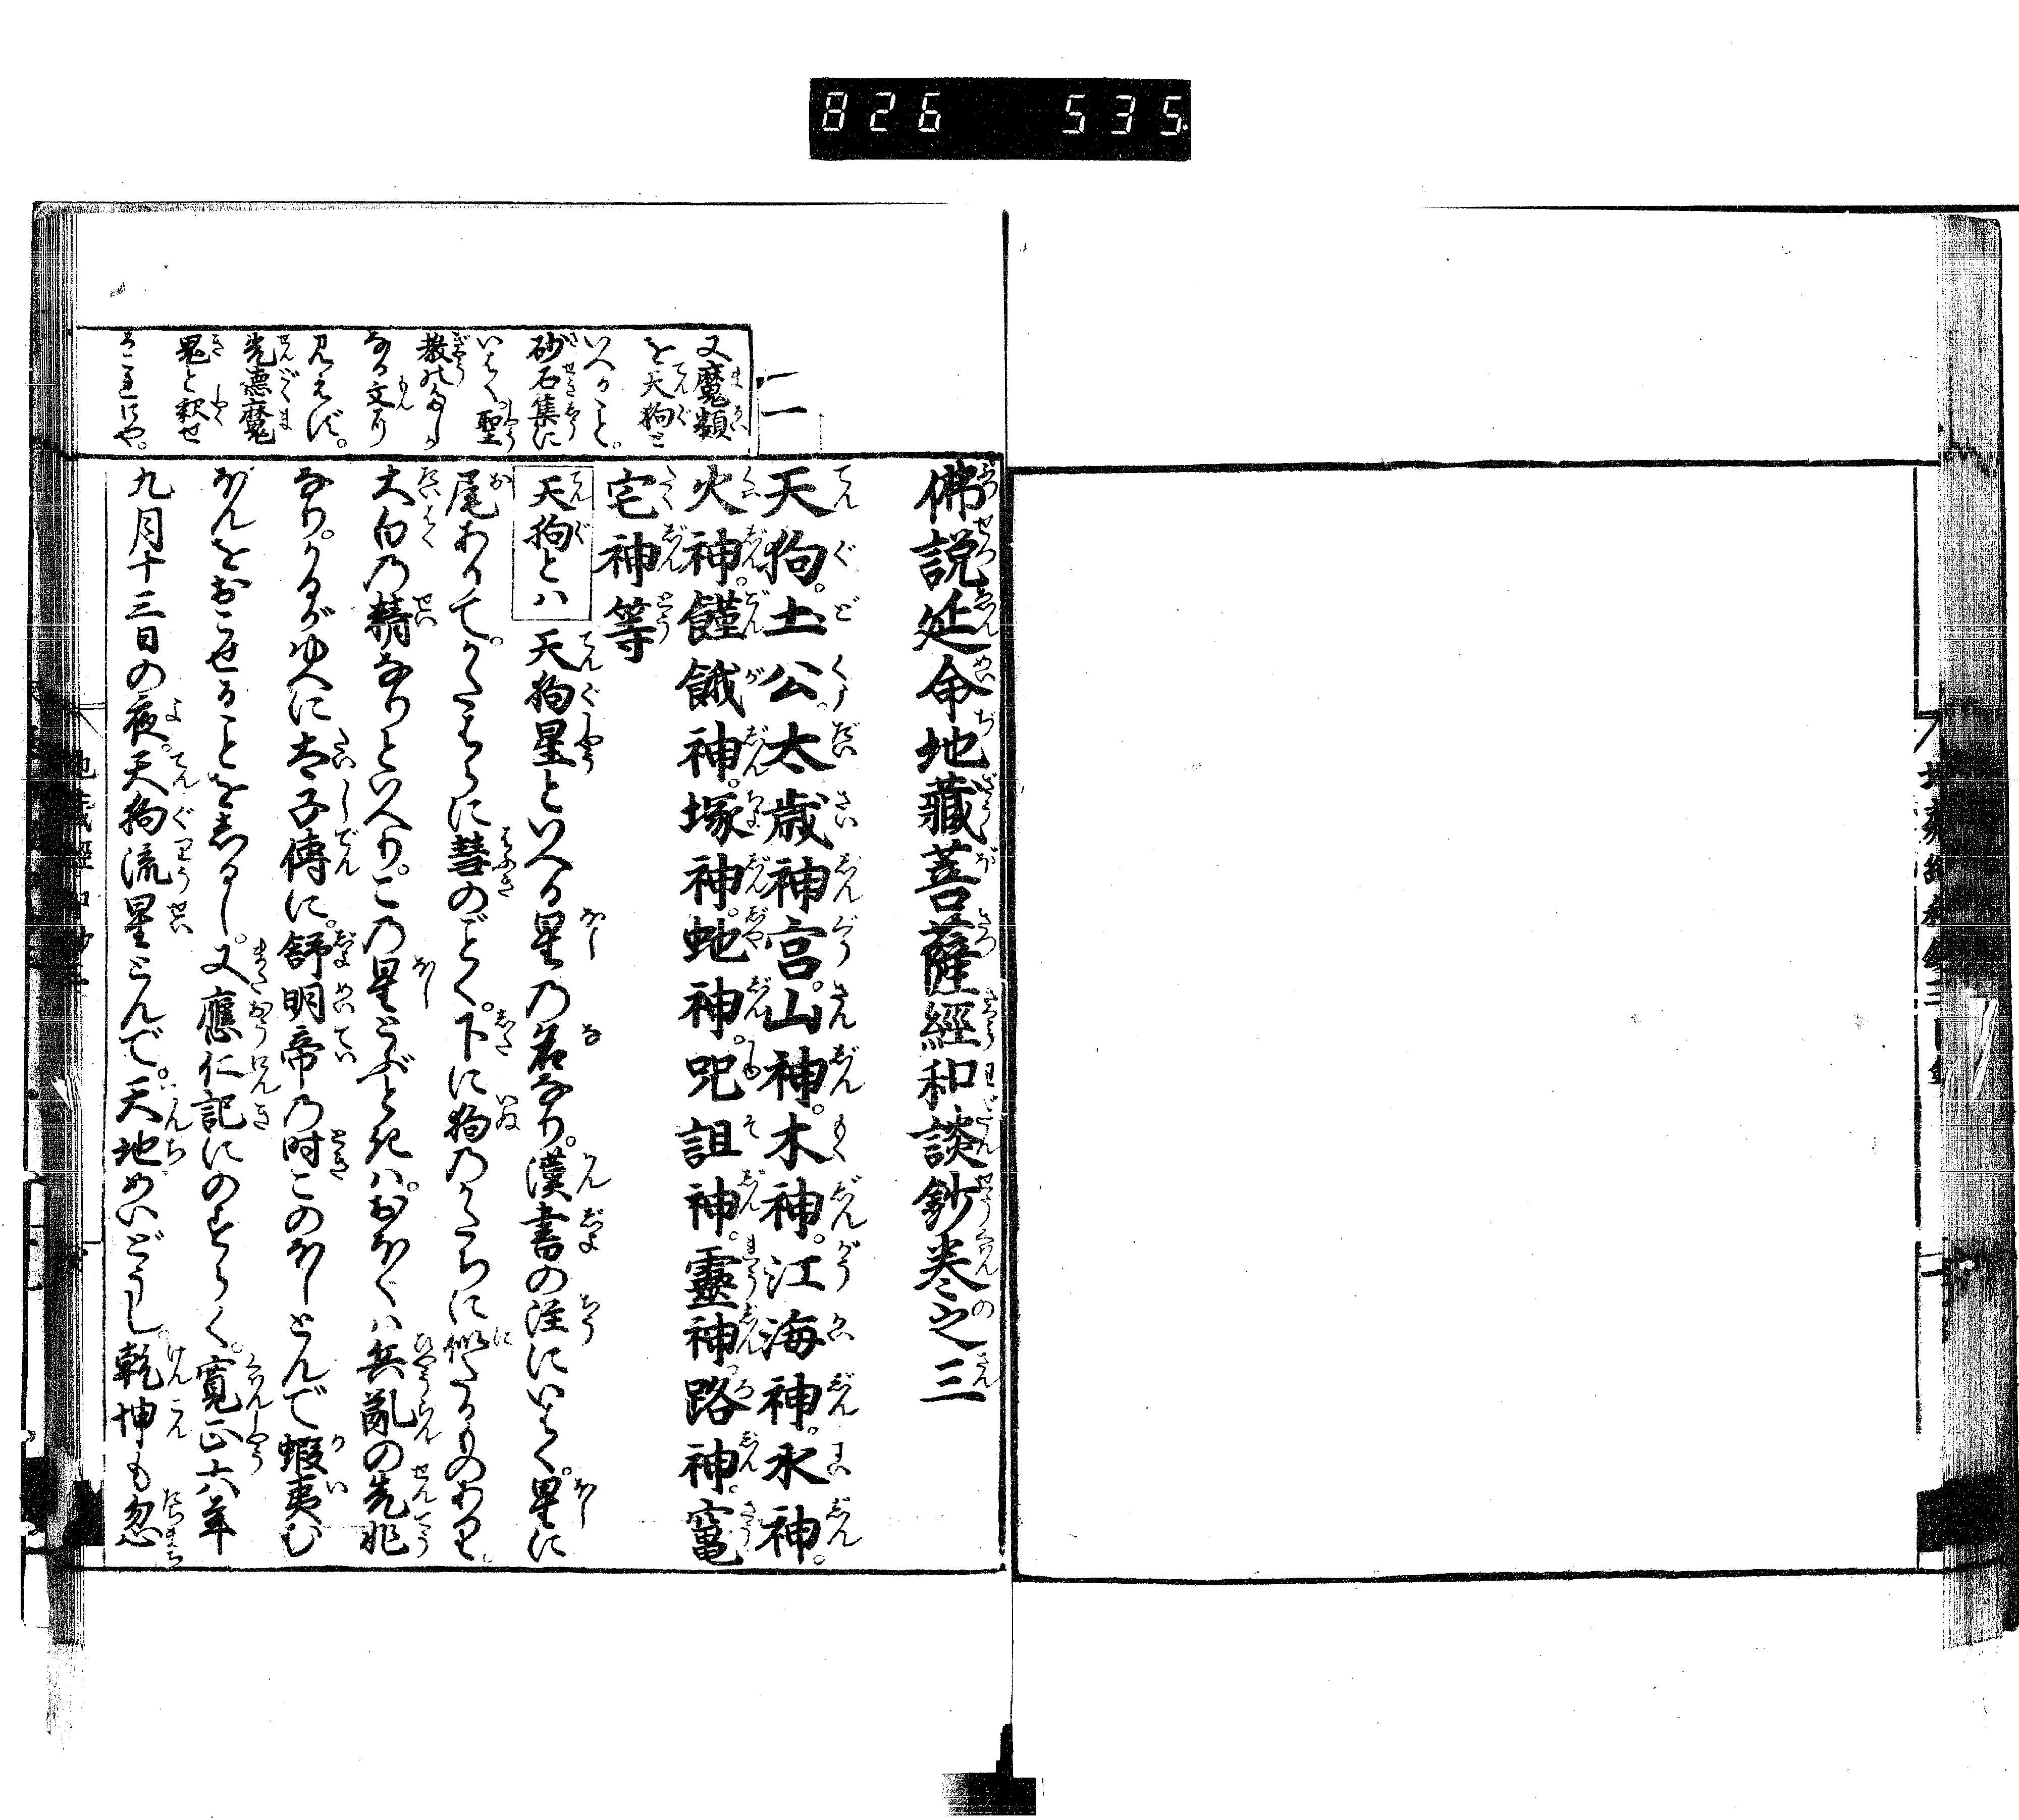 826 535
佛説延命地藏菩薩經和談鈔卷之三
天狗。土公。太歳神宮。山神。木神。江海神。水神。
火神。饉餓神。塚神。蛇神。咒詛神。靈神。路神。竈
宅神等
天狗とハ 天狗星といへる星乃名なり。漢書の注にいはく。星に
尾ありて。かたはらに彗のごとく。下に狗乃かたちに似たるものあり。
大白乃精なりといへり。この乃星とぶときハ。おほくハ兵亂の先兆
なり。かるがゆへに太子傳に。舒明帝乃時このほしとんで蝦夷む
ほんをおこせることをしるし。又應仁記にのすらく。寛正六年
九月十三日の夜。天狗流星とんで。天地めいどうし。乾坤も忽
又魔類
を天狗と
いへること。
砂石集に
いはく。聖
教のたしか
なる文あり
見えず。
先德魔
鬼と釈せ
るこれにや。
二